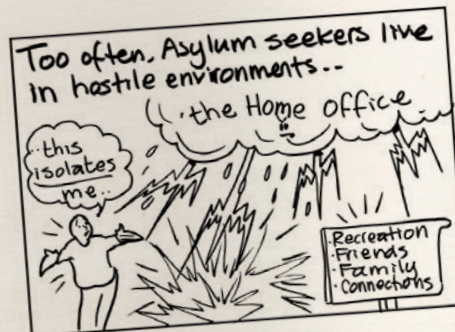 Too often, Asylum seekers live
in hostile environments...
the Home office
this
isolates
me..
·Recreation
·Friends
·Family
·Connections